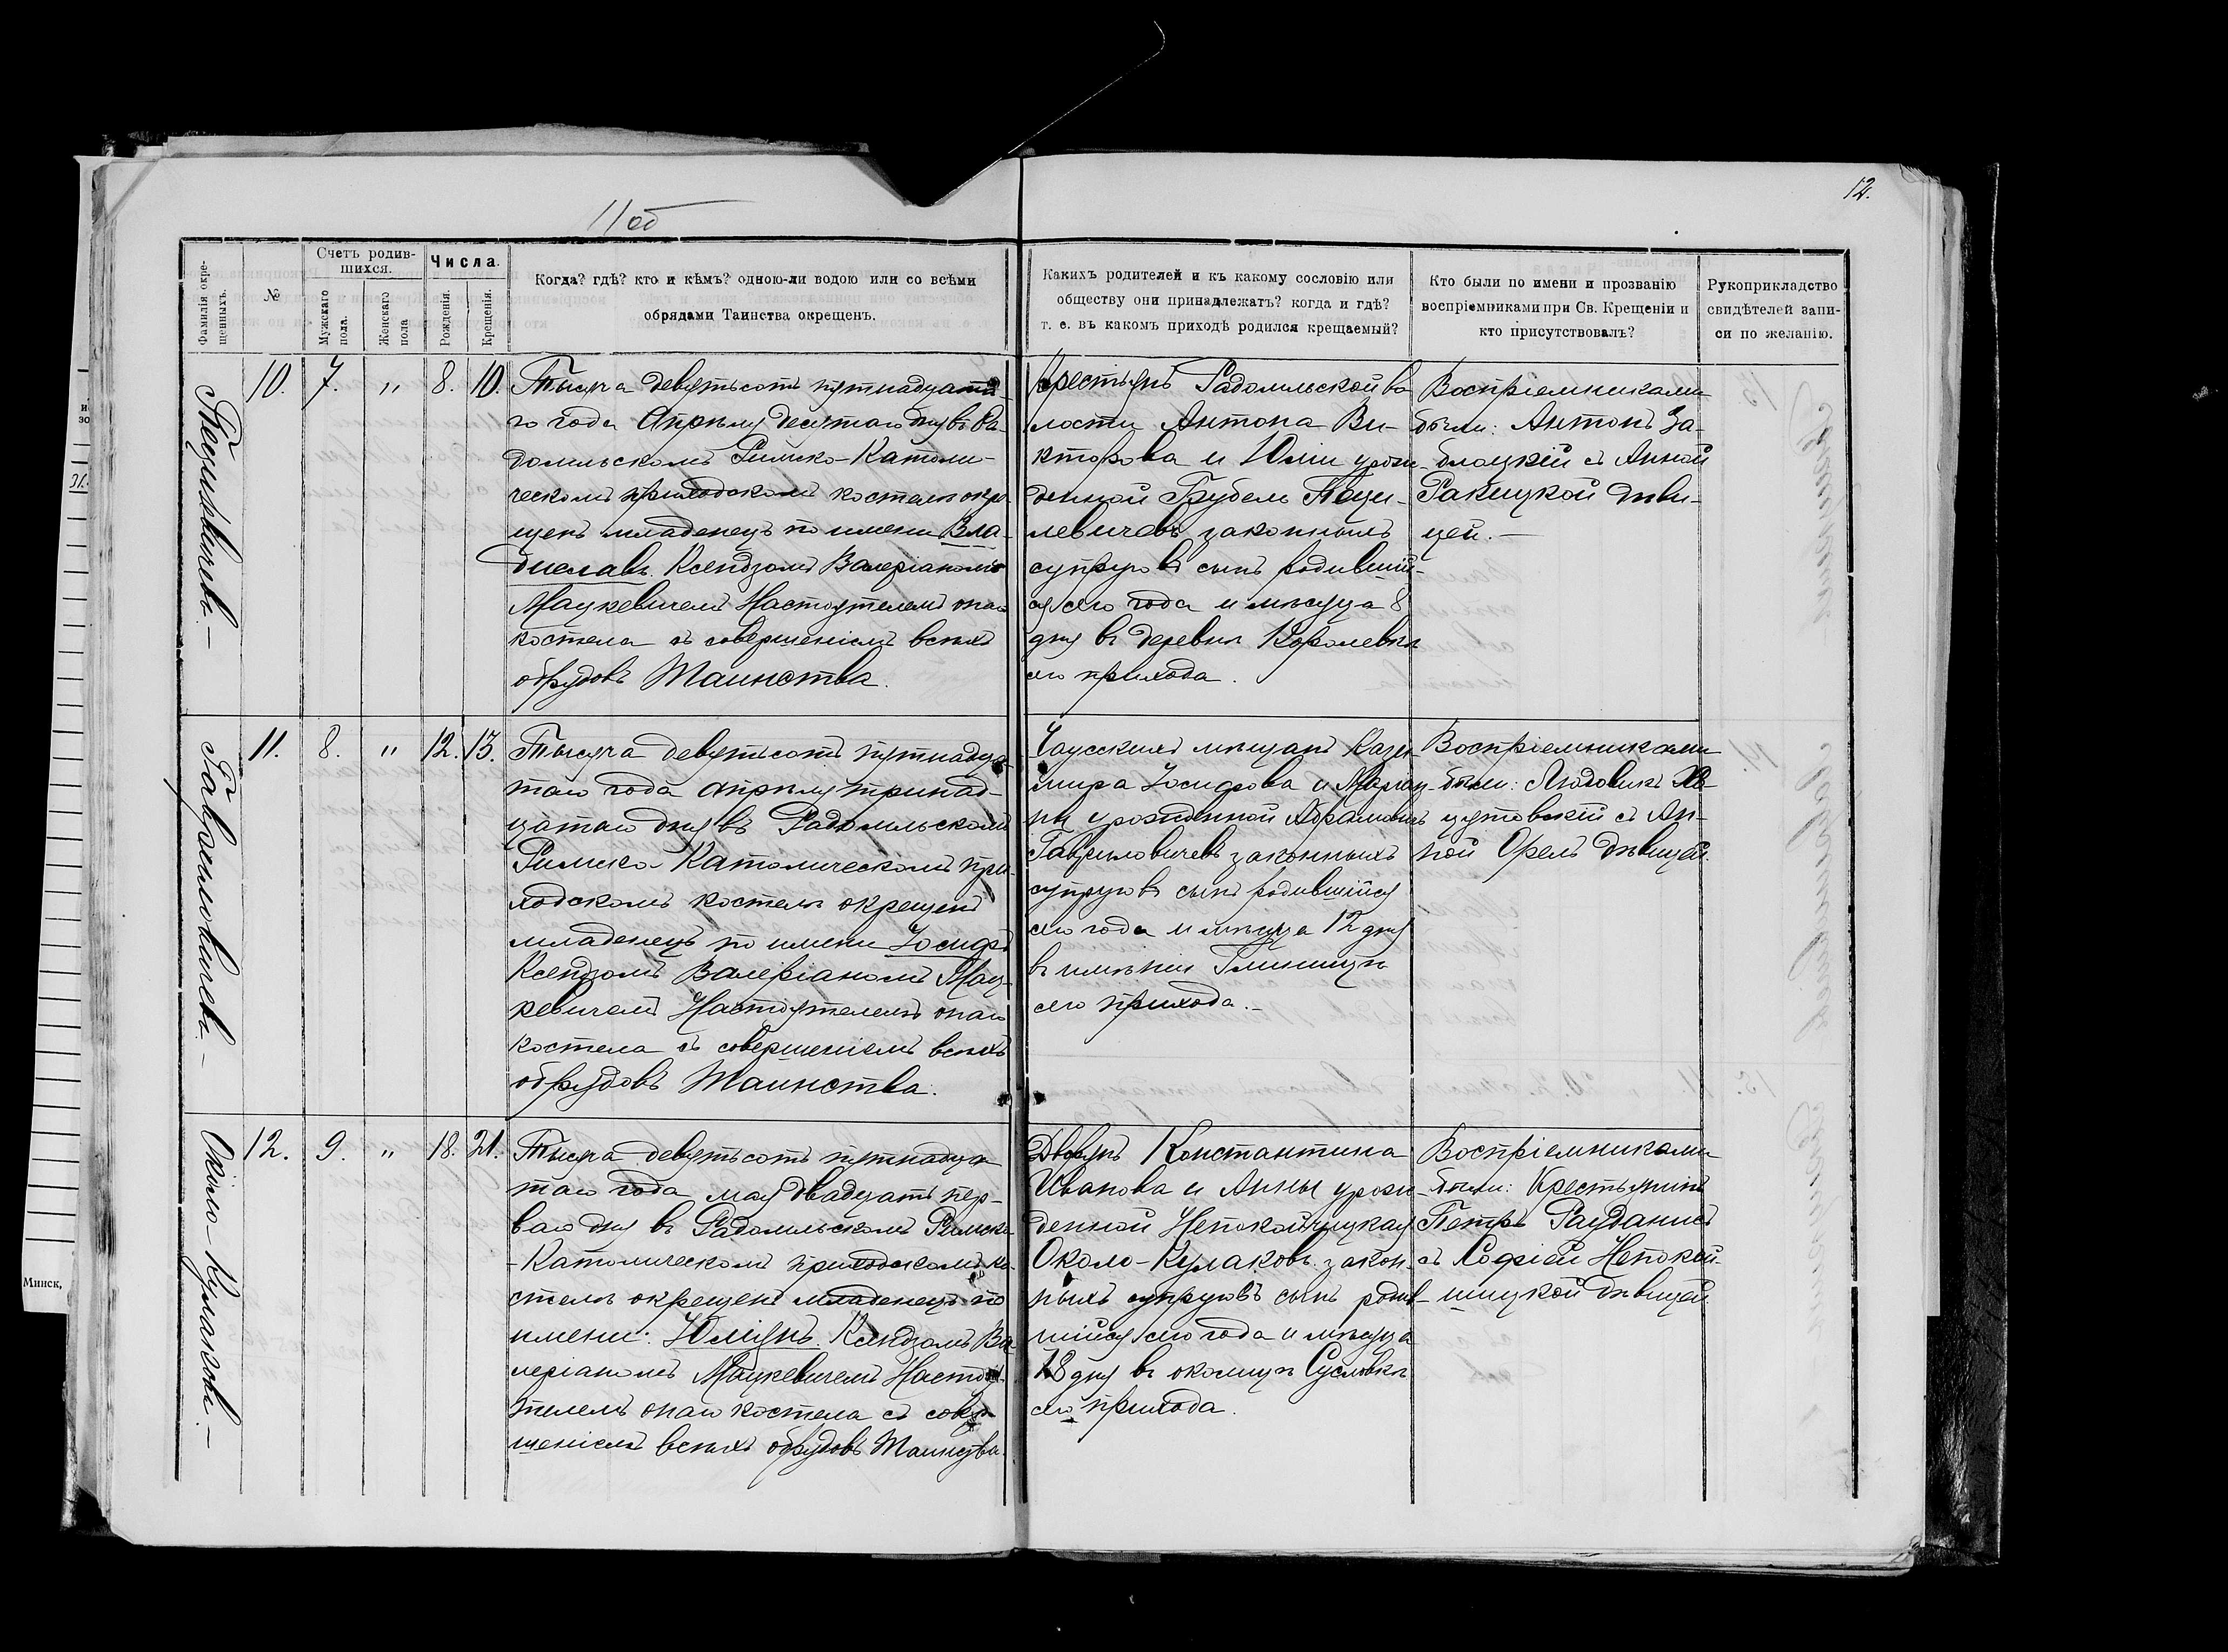 11 об
12.
Фамилія окре-
щенныхъ.
№
Счетъ родив-
шихся.
Мужскаго
пола.
Женскаго
пола
Числа.
Рожденія.
Крещенія.
Когда? гдѣ? кто и кѣмъ? одною-ли водою или со всѣми
обрядами Таинства окрещенъ.
Какихъ родителей и къ какому сословію или
обществу они принадлежатъ? когда и гдѣ?
т. е. въ какомъ приходѣ родился крещаемый?
Кто были по имени и прозванію
воспріемниками при Св. Крещеніи и
кто присутствовалъ?
Рукоприкладство
свидѣтелей запи-
си по желанію.
Пецилевичевъ.—
10. 7. " 8. 10.
Тысяча девятьсотъ пятнадцата-
го года Апрѣля десятаго дня въ Ра-
домльскомъ Римско-Католи-
ческомъ приходскомъ костелѣ окре-
щенъ младенецъ по имени Вла-
диславъ Ксендзомъ Валеріаномъ
Мацкевичемъ Настоятелемъ онаго
костела съ совершеніемъ всѣхъ
обрядовъ Таинства.
Крестьянъ Радомльской во
лости Антона Ви-
кторова и Юліи урож-
денной Грубель Пеци-
левичевъ законныхъ
супруговъ сынъ родившій-
ся сего года и мѣсяца 8
дня въ деревнѣ Королевкѣ
сего прихода.
Воспріемниками
были: Антонъ За-
блоцкій съ Анной
Ракицкой дѣви-
цей.—
Гавриловичевъ.—
11. 8. " 12. 13.
Тысяча девятьсотъ пятнадца-
таго года апрѣля тринад-
цатаго дня въ Радомльскомъ
Римско-Католическомъ при-
ходскомъ костелѣ окрещенъ
младенецъ по имени Іосифъ
Ксендзомъ Валеріаномъ Мац-
кевичемъ Настоятелемъ онаго
костела съ совершеніемъ всѣхъ
обрядовъ Таинства.
Чаусскихъ мѣщанъ Кази-
мира Іосифова и Маріан-
ны урожденной Абрамовичъ
Гавриловичевъ законныхъ
супруговъ сынъ родившійся
сего года и мѣсяца 12 дня
въ имѣніи
сего прихода.—
Воспріемниками
были: Людовикъ
съ Ан-
ной Орелъ дѣвицей.
Около-Кулаковъ.—
12. 9. " 18. 21.
Тысяча девятьсотъ пятнадца
таго года мая двадцать пер-
ваго дня въ Радомльскомъ Римско
-Католическомъ приходскомъ ко-
стелѣ окрещенъ младенецъ по
имени: Юліанъ Ксендзомъ Ва-
леріаномъ Мацкевичемъ Настоя-
телемъ онаго костела съ совер-
шеніемъ всѣхъ обрядовъ Таинства.
Дворянъ Константина
Иванова и Анны урож-
денной Непокойчицкая
Около-Кулаковъ закон-
ныхъ супруговъ сынъ родив-
шійся сего года и мѣсяца
18 дня въ околицѣ Сусловкѣ
сего прихода.
Воспріемниками
были: Крестьянинъ
Петръ
съ Софіей Непокой-
чицкой дѣвицей.
Минск,